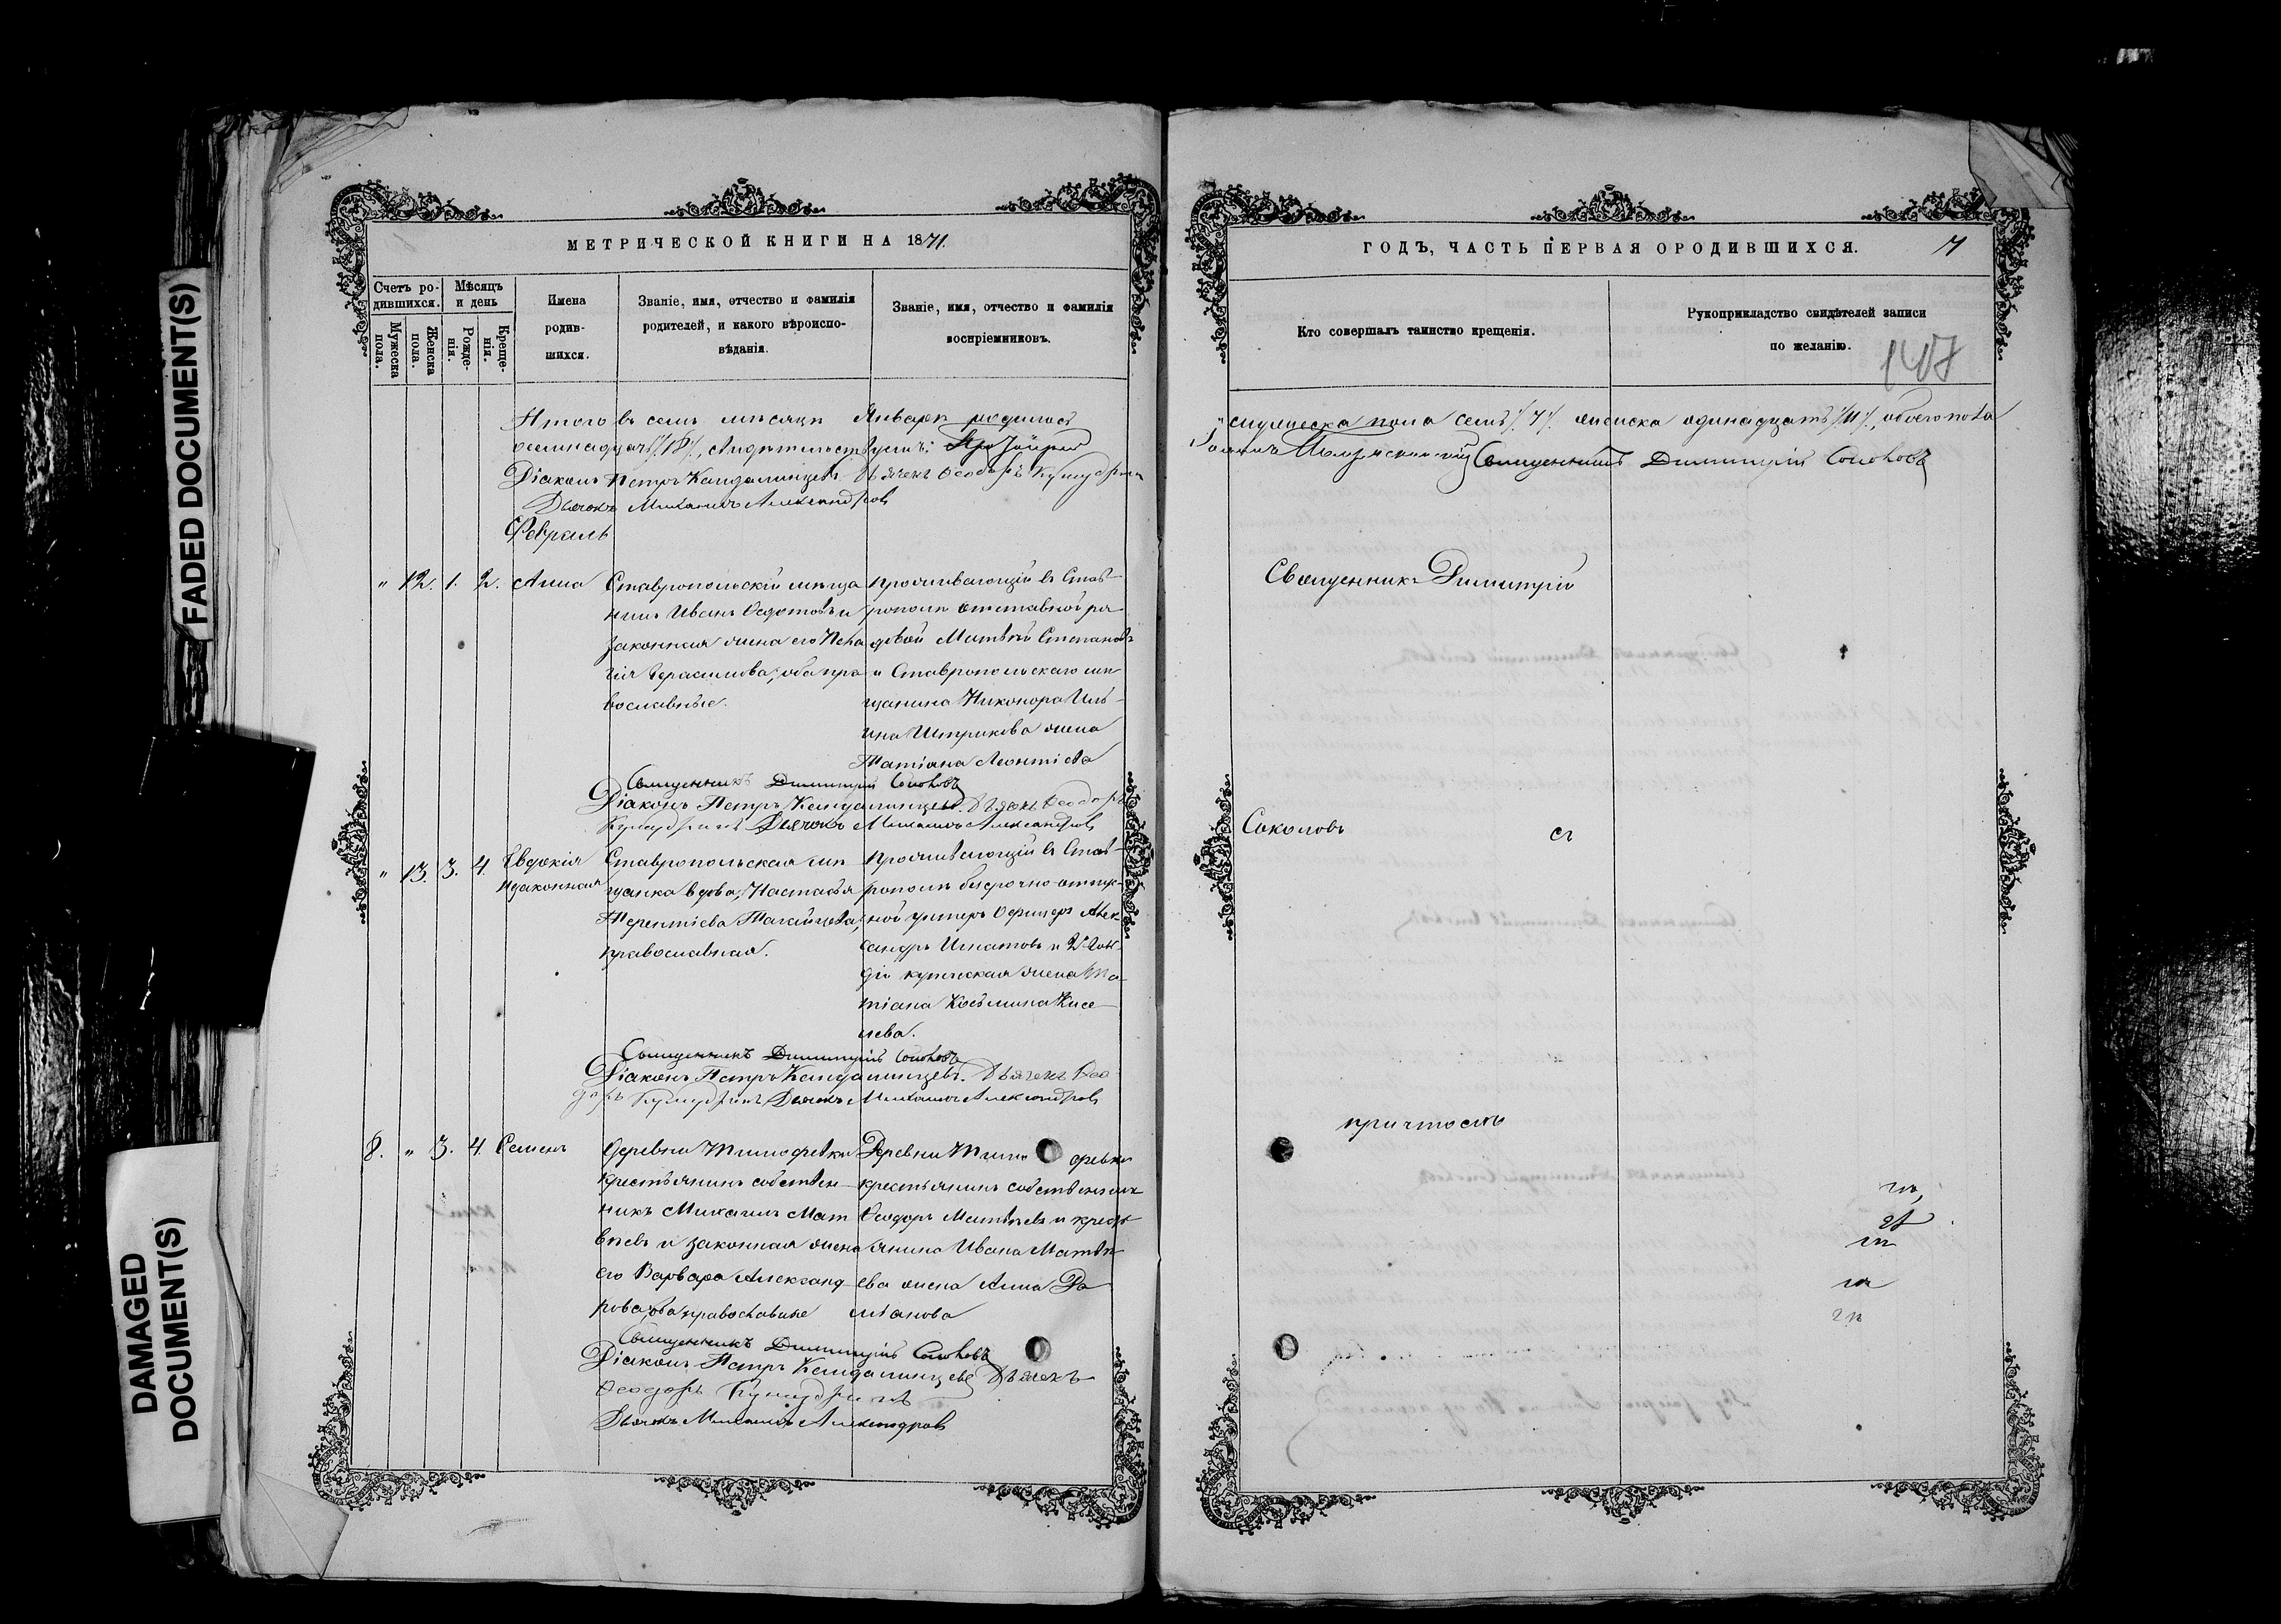 FADED DOCUMENT(S)
DAMAGED
DOCUMENT(S)
МЕТРИЧЕСКОЙ КНИГИ НА 1871.
Счетъ ро-
дившихся.
Мѣсяцъ
и день
Мужеска
пола.
Женска
пола.
Рожде-
нія.
Креще-
нія.
Имена
родив-
шихся.
Званіе, имя, отчество и фамилія
родителей, и какого вѣроиспо-
вѣданія.
Званіе, имя, отчество и фамилія
воспріемниковъ.
Итого въ семъ мѣсяцѣ Январѣ родилось
осемнадцать /18/,
Діаконъ Петръ Кандалинцевъ Дьячекъ Ѳеодоръ
Дьячокъ Михаилъ Александровъ
Февраль
" 12. 1. 2. Анна
Ставропольскій мѣща
нинъ Иванъ Ѳедотовъ и
законная жена его Пела
гія Герасимова, оба пра
вославные.
проживающій въ Став-
рополѣ отставной ря-
довой Матвѣй Степановъ
и Ставропольскаго мѣ-
щанина Никонора Иль-
ина Штрикова жена
Татіана Леонтіева
Священникъ Димитрій Соколовъ
Діаконъ Петръ Кандалинцевъ. Дьячекъ Ѳеодоръ
Дьячокъ Михаилъ Александровъ
" 13. 3. 4. Евдокія
незаконная
Ставропольская мѣ
щанка вдова, Настасья
Терентіева
православная.
проживающій въ Став-
рополѣ безсрочно-отпуск-
ной унтеръ Офицеръ Алек-
сандръ Игнатовъ и 2й Гиль-
діи купеческая жена Та-
тіана Косьмина Кисе-
лева.
Священникъ Димитрій Соколовъ
Діаконъ Петръ Кандалинцевъ. Дьячекъ Ѳео
доръ Дьячокъ Михаилъ Александровъ
8. " 3. 4. Семенъ
Деревни Тимофѣевки
крестьянинъ собствен-
никъ Михаилъ Мат
вѣевъ и законная жена
его Варвара Александ-
рова, оба православные
Деревни Тимофѣевки
крестьянинъ собственникъ
Ѳеодоръ Матвѣевъ и кресть
янина Ивана Матвѣ-
ева жена Анна Да
міанова
Священникъ Димитрій Соколовъ
Діаконъ Петръ Кандалинцевъ Дьячекъ
Ѳеодоръ
Дьячокъ Михаилъ Александровъ
ГОДЪ, ЧАСТЬ ПЕРВАЯ О РОДИВШИХСЯ. 7
Кто совершалъ таинство крещенія.
Рукоприкладство свидѣтелей записи
по желанію.
147
мужеска пола семь /7/. женска одинадцать /11/, обоего пола
Священникъ Димитрій Соколовъ
Священникъ Димитрій
Соколовъ съ
причтомъ